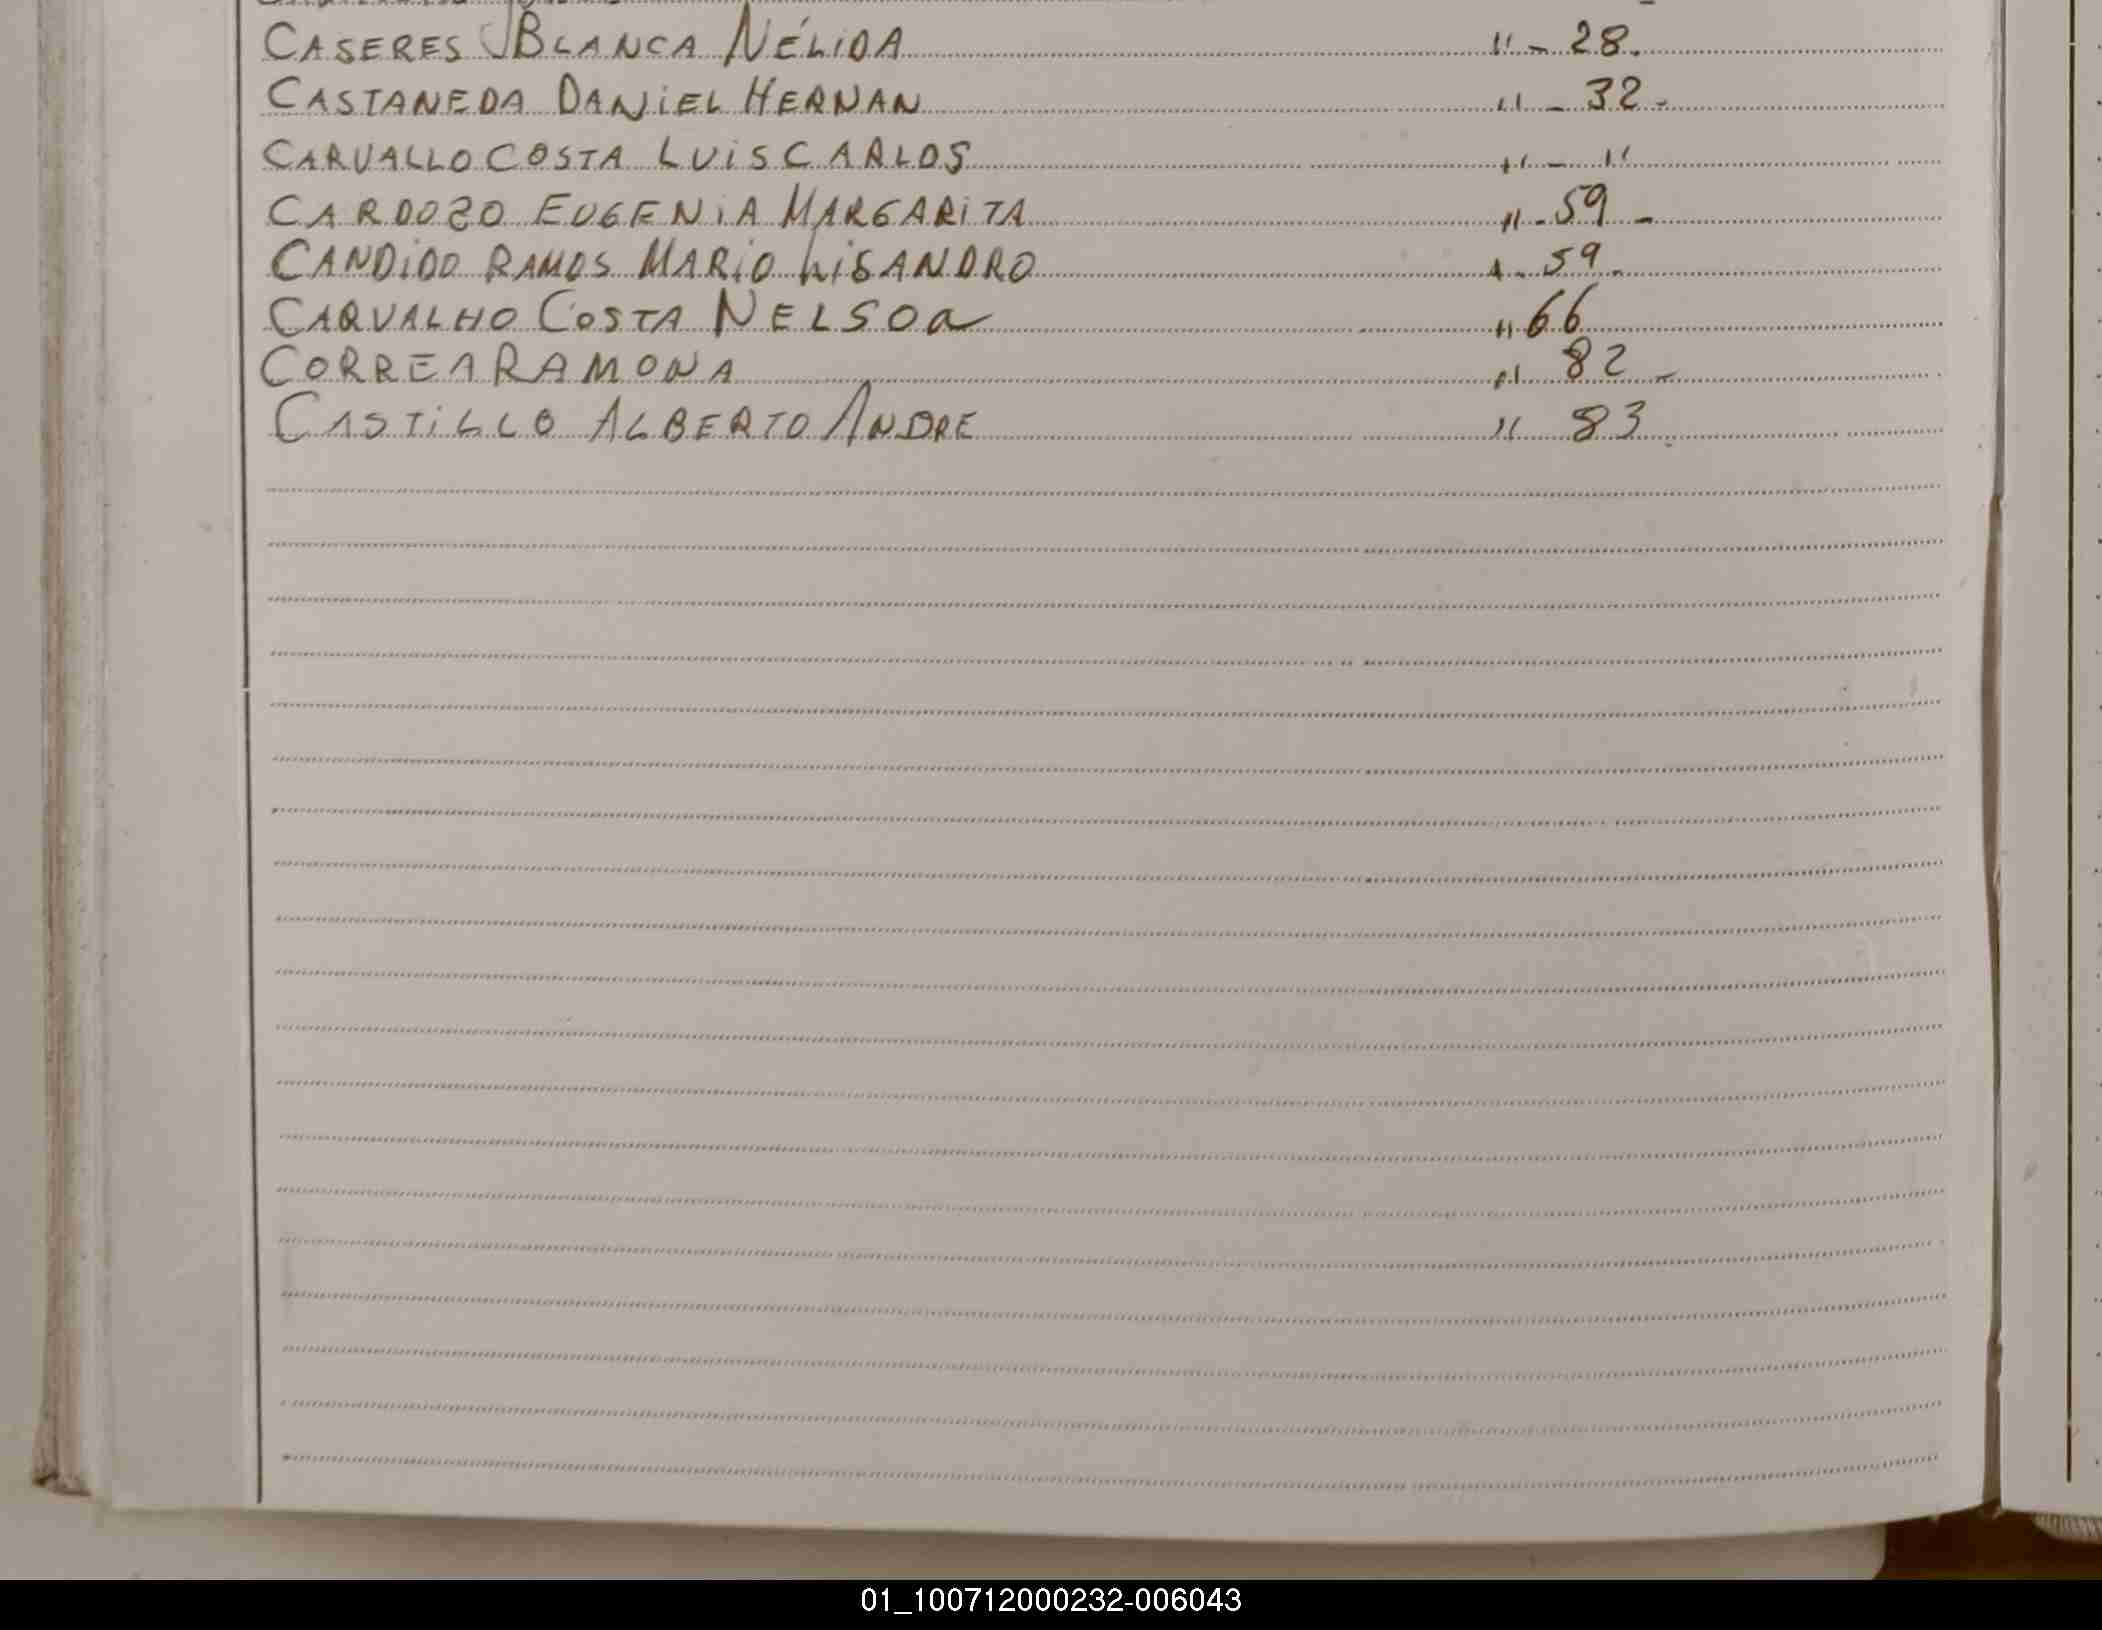 CASERES BLANCA NÉLIDA " - 28.
CASTANEDA DANiEL HERNAN " - 32 -
CARVALLO COSTA LUiS CARLOS " - "
CARDOZO EUGENiA MARGARiTA " - 59 -
CANDiDO RAMOS MARiO LiSANDRO " - 59.
CARVALHO COSTA NELSON " 66
CORREA RAMONA " 82 -
CASTiLLO ALBERTO ANDRE " 83.
01_100712000232-006043